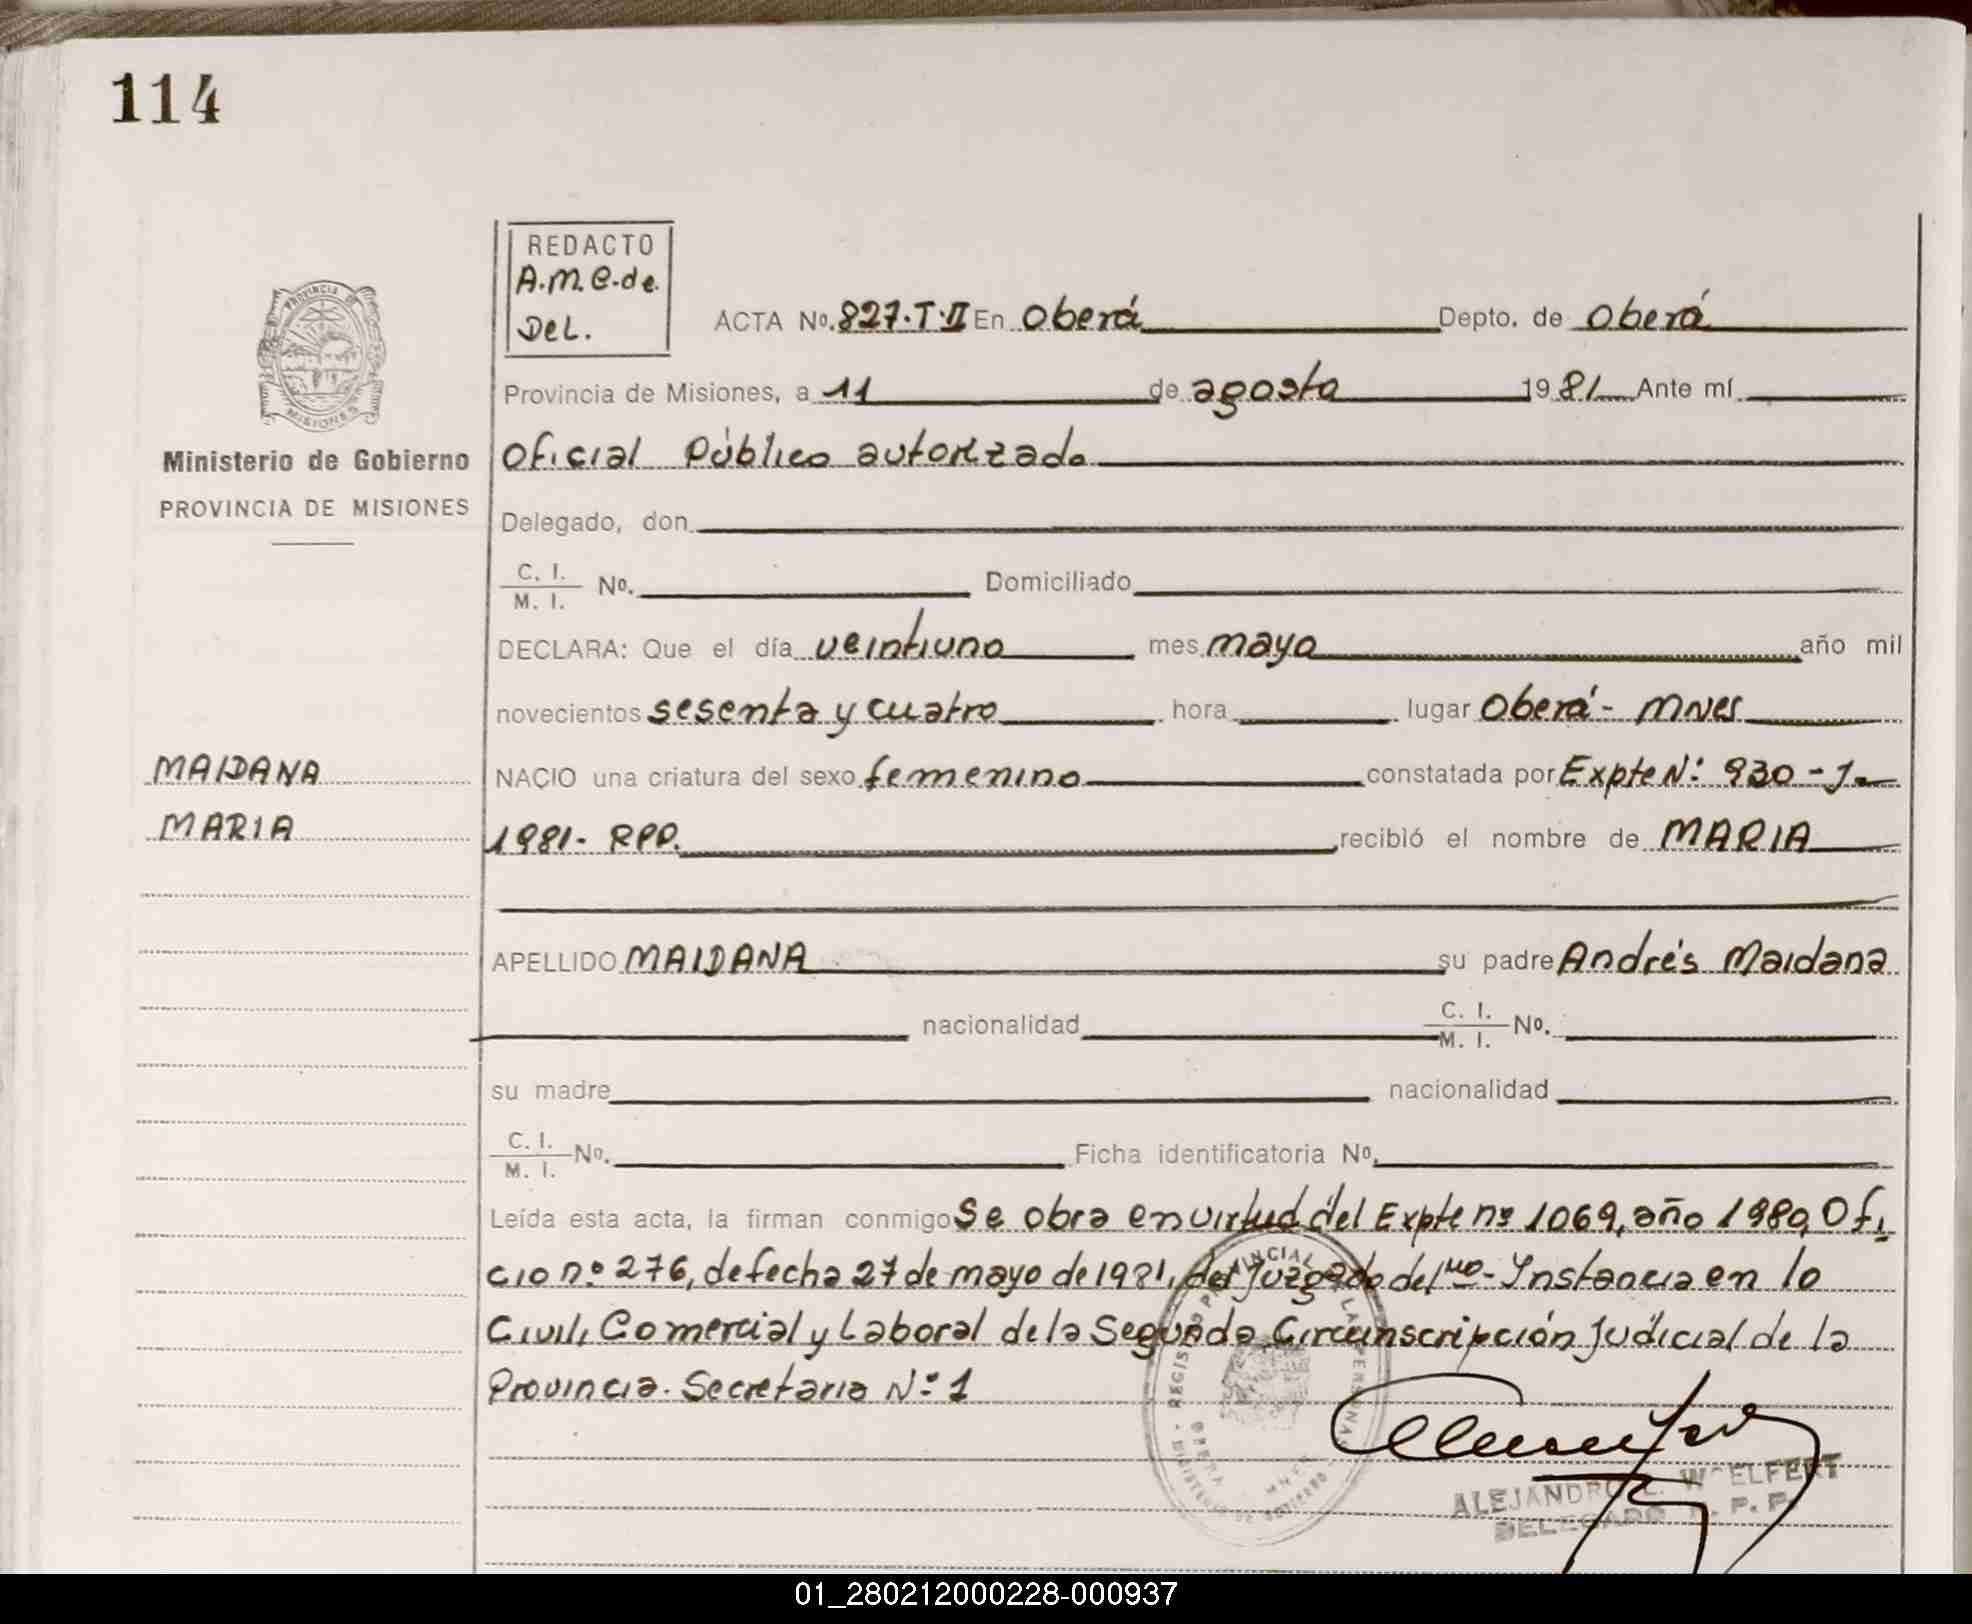 114
REDACTO
A.M.C. de
Del.
ACTA No. 827.T.II En Oberá Depto. de Oberá
PROVINCIA DE MISIONES
Provincia de Misiones, a 11 de agosto 1981 Ante mí
Ministerio de Gobierno
PROVINCIA DE MISIONES
Oficial Público autorizado
Delegado, don
C. I. / M. I. No. Domiciliado
DECLARA: Que el día veintiuno mes mayo año mil
novecientos sesenta y cuatro hora lugar Oberá - Mnes
MAIDANA
MARIA
NACIO una criatura del sexo femenino constatada por Expte Nº 930 - J-
1981 - RPP. recibió el nombre de MARIA
APELLIDO MAIDANA su padre Andrés Maidana
nacionalidad C. I. / M. I. No.
su madre nacionalidad
C. I. / M. I. No. Ficha identificatoria No.
Leída esta acta, la firman conmigo Se obra en virtud del Expte nº 1069, año 1980, Ofi
cio nº 276, de fecha 27 de mayo de 1981, del Juzgado de 1 Instancia en lo
Civil, Comercial y Laboral de la Segunda Circunscripción Judicial de la
Provincia. Secretaria Nº 1
REGISTRO PROVINCIAL DE LAS PERSONAS
ALEJANDRO L. WOELFERT
DELEGADO R. P. P.
01_280212000228-000937